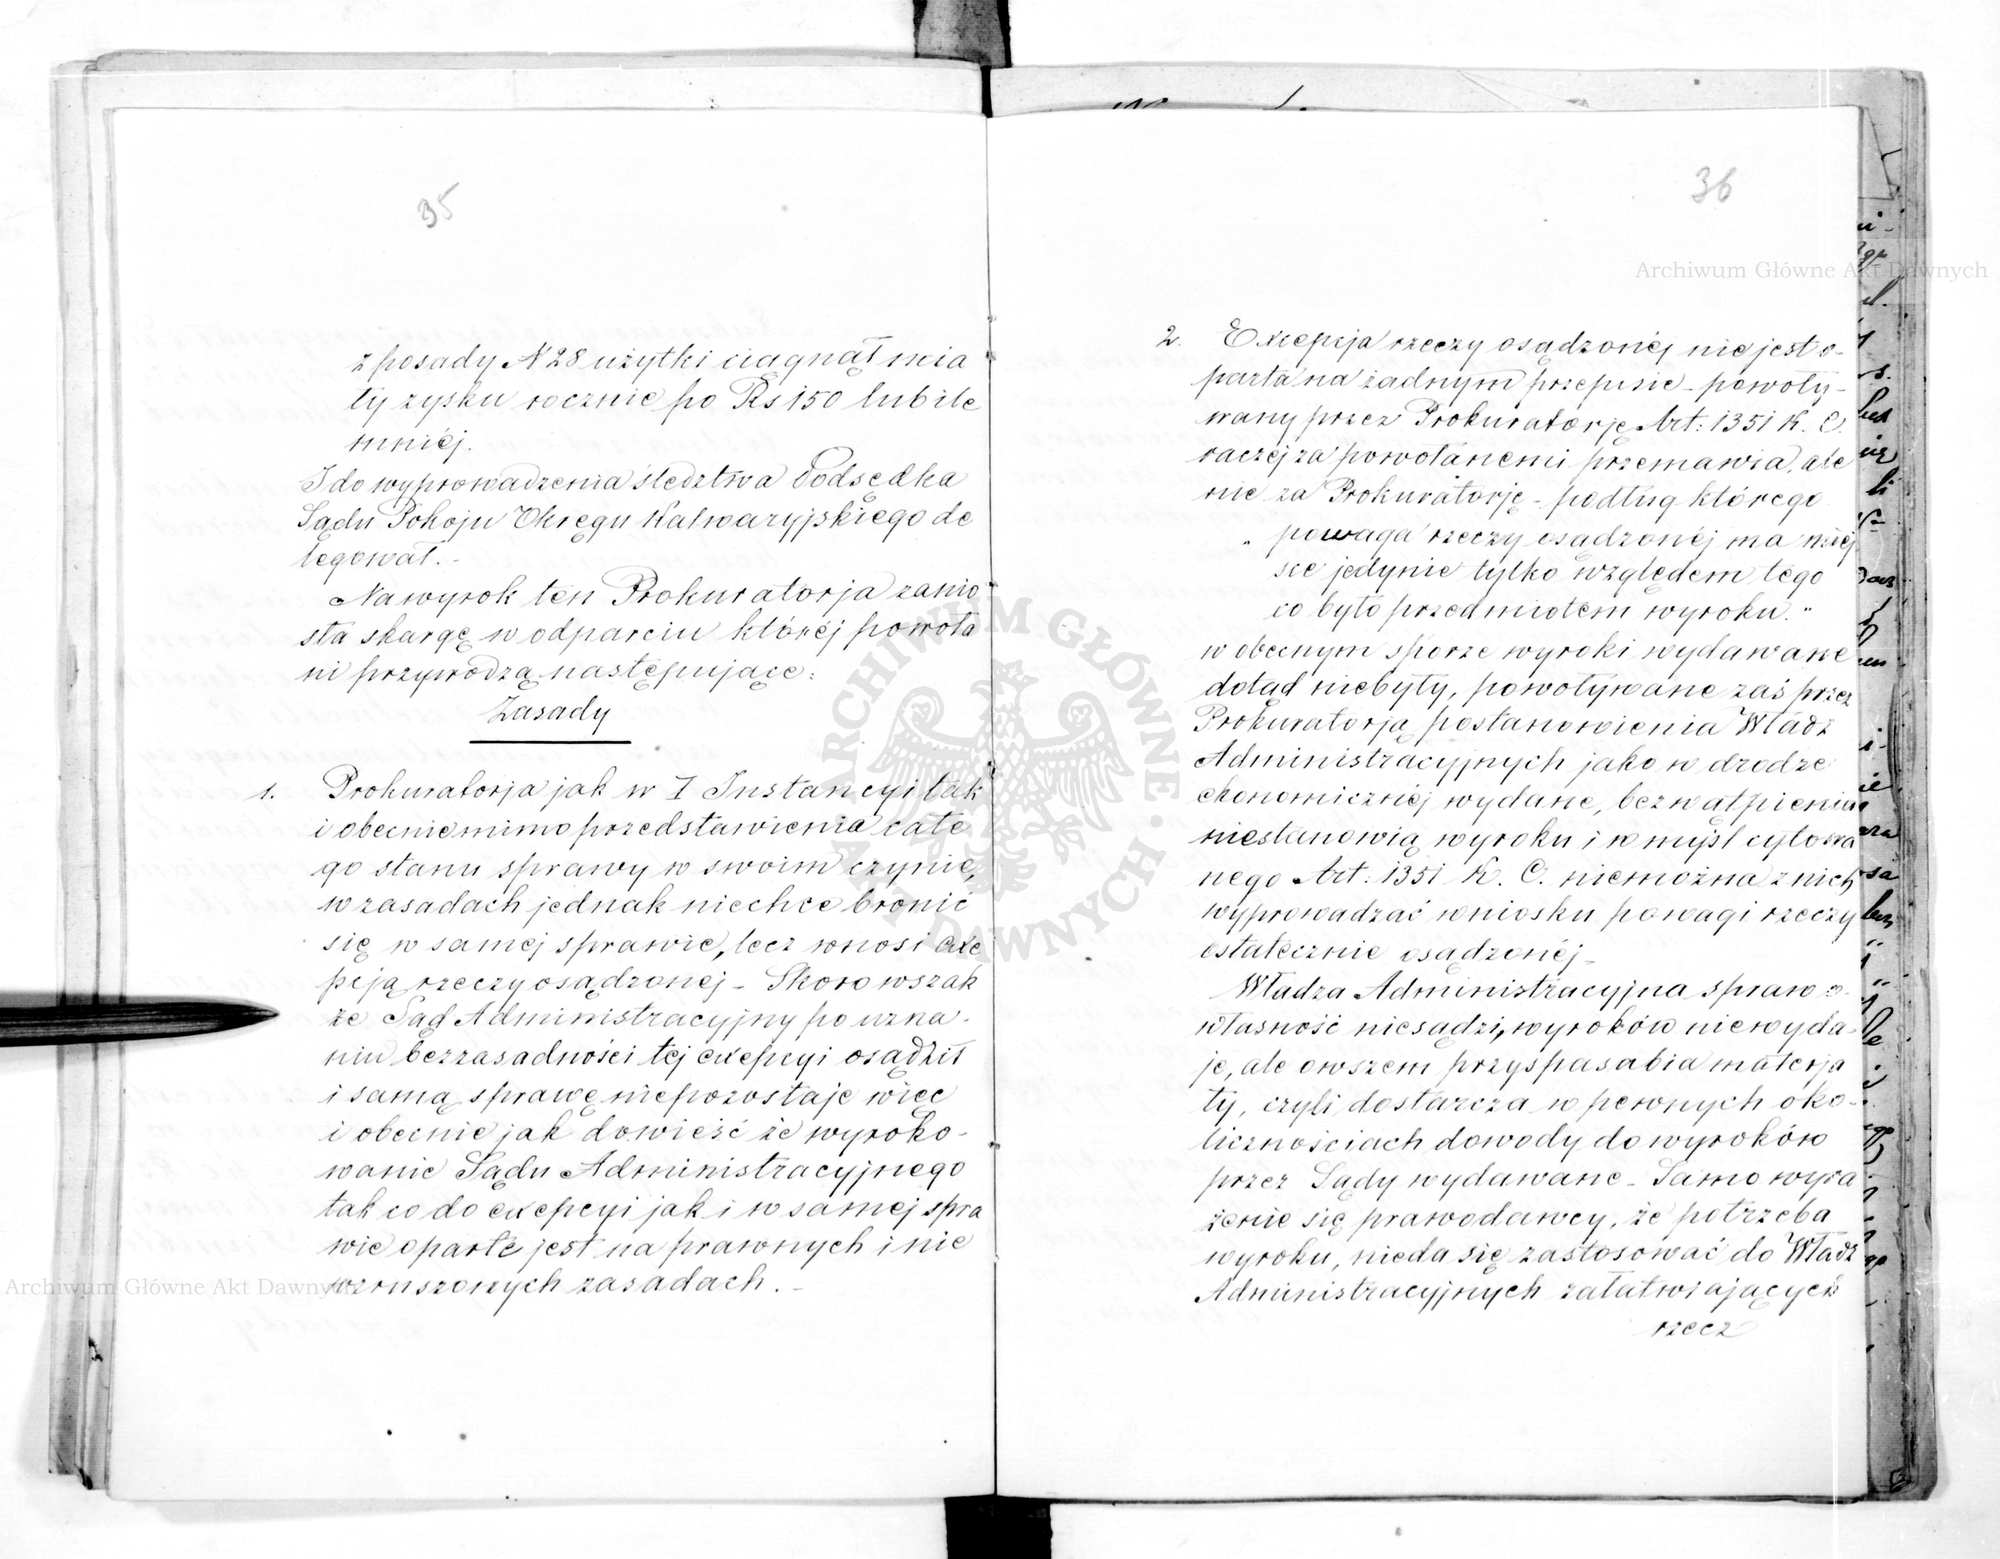 35
z posady N 28 użytki ciągnął mia
ły zysku rocznie po Rs 150 lub ile
mniéj.
I do wyprowadzenia śledztwa Podsędka
Sądu Pokoju Okręgu Kalwaryjskiego de
legował.-
Na wyrok ten Prokuratorja zanio
sła skargę w odparciu któréj powoła
ni przywodzą następujące:
Zasady
1. Prokuratorja jak w I Instancyi tak
i obecnie mimo przedstawienia całe
go stanu sprawy w swoim czynie,
w zasadach jednak niechce bronić
się w samej sprawie, lecz wnosi exce
pcją rzeczy osądzonej - Skoro wszak
że Sąd Administracyjny po uzna-
niu bezzasadności tej excepcyi osądził
i samą sprawę niepozostaje więc
i obecnie jak dowieść że wyroko-
wanie Sądu Administracyjnego
tak co do excepcyi jak i w samej spra
wie oparte jest na prawnych i nie
wzruszonych zasadach.-
36
2. Excepcja rzeczy osądzonéj nie jest o-
parta na żadnym przepisie - powoły-
wany przez Prokuratorję Art: 1351 K. C.
raczéj za powołanemi przemawia, ale
nie za Prokuratorję - podług którego
" powaga rzeczy osądzonéj ma miéj
sce jedynie tylko względem tego
co było przedmiotem wyroku."
w obecnym sporze wyroki wydawane
dotąd niebyły, powoływane zaś przez
Prokuratorją postanowienia Władz
Administracyjnych jako w drodze
ekonomicznéj wydane, bezwątpienia
niestanowią wyroku i w myśl cytowa
nego Art. 1351 K. C. niemożna z nich
wyprowadzać wniosku powagi rzeczy
ostatecznie osądzonéj.-
Władza Administracyjna spraw o-
własność niesądzi, wyroków niewyda-
je, ale owszem przysposabia materja
ły, czyli dostarcza w pewnych oko-
licznościach dowody do wyroków
przez Sądy wydawane - Samo wyra
żenie się prawodawcy, że potrzeba
wyroku, nieda się zastosować do Władz
Administracyjnych załatwiających
rzecz
Archiwum Główne Akt Dawnych
Archiwum Główne Akt Dawnych
ARCHIWUM GŁÓWNE AKT DAWNYCH